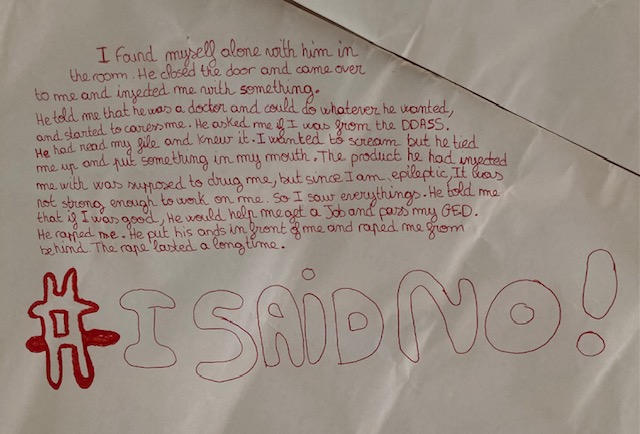 I found myself alone with him in
the room. He closed the door and came over
to me and injected me with something.
He told me that he was a doctor and could do whatever he wanted,
and started to caress me. He asked me if I was from the DDASS.
He had read my file and knew it. I wanted to scream but he tied
me up and put something in my mouth. The product he had injected
me with was supposed to drug me, but since I am epileptic, It was
not strong enough to work on me. So I saw everythings. He told me
that if I was good, He would help me get a Job and pass my GED.
He rapped me. He put his ands in front of me and raped me from
behind. The rape lasted a long time.
#I SAiD NO!